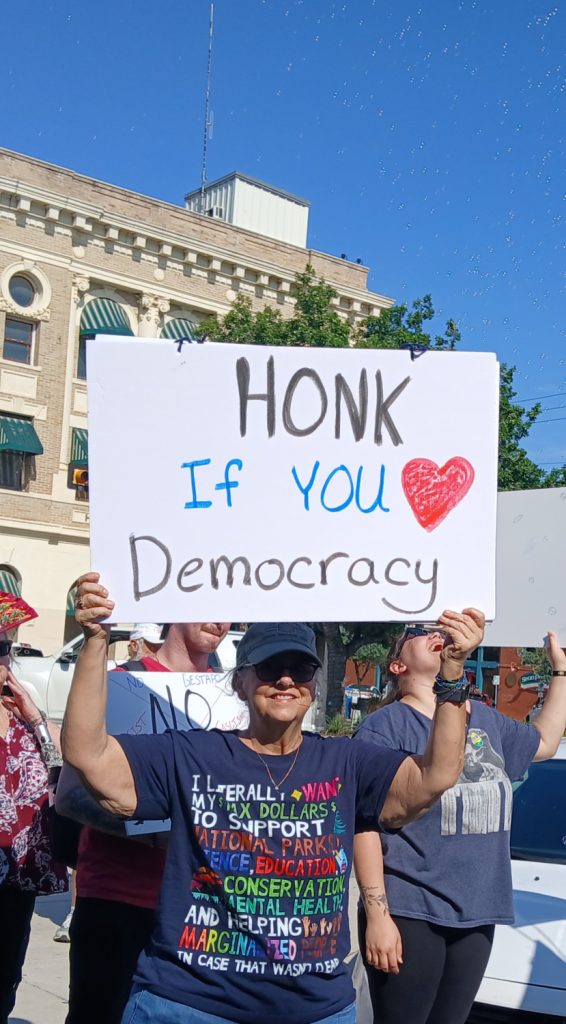 HONK
If YOU
Democracy
NO
GESTAPO
NO
I LITERALLY WANT
MY TAX DOLLARS
TO SUPPORT
NATIONAL PARKS,
SCIENCE, EDUCATION,
CONSERVATION,
MENTAL HEALTH,
AND HELPING
MARGINALIZED PEOPLE
IN CASE THAT WASN'T